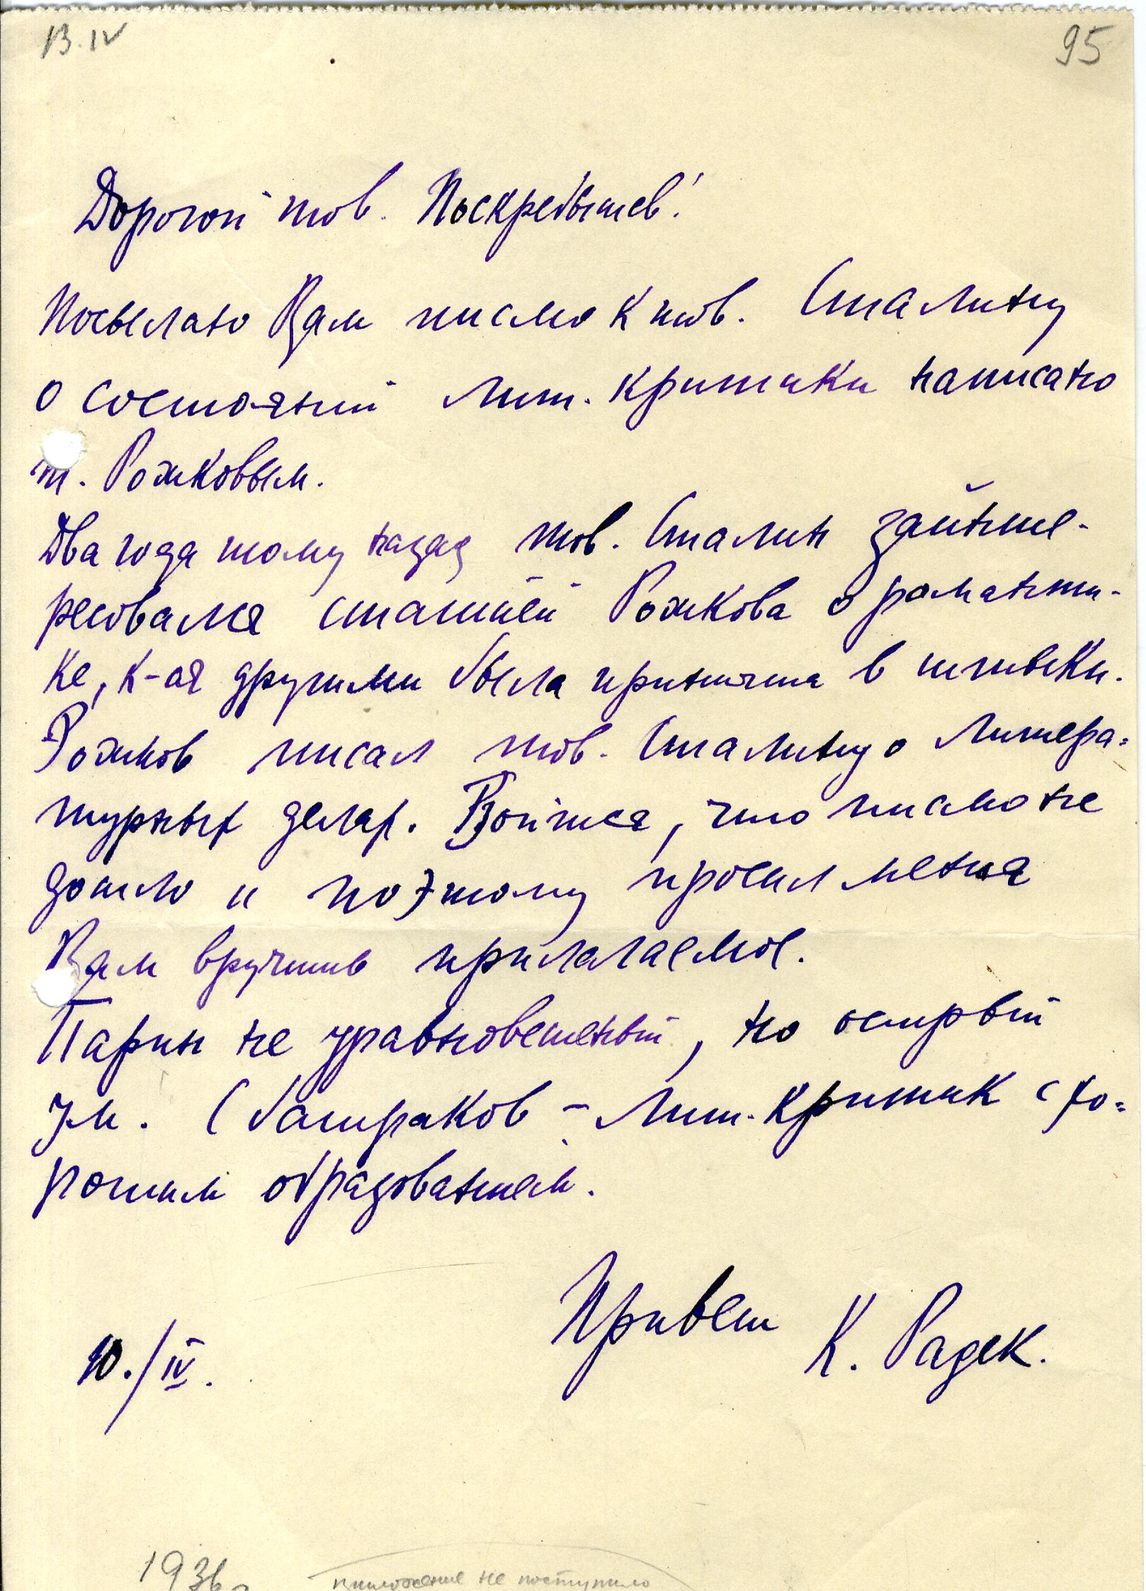 13.IV
95
Дорогой тов. Поскребышев!
Посылаю Вам писмо к тов. Сталину
о состояний лит. критики написано
т. Рожковым.
Два года тому назад тов. Сталин заинте-
ресовался статией Рожкова о романти-
ке, к-ая другими была принята в штыки.
Рожков писал тов. Сталину о литера-
турных делах. Боится, что писмо не
дошло и поэтому просил меня
Вам вручить прилагаемое.
Парин не уравновешеный, но острый
ум. Сбатраков – лит. критик с хо-
рошим образованием.
Привет
К. Радек.
10./IV.
1936 г.
приложение не поступило